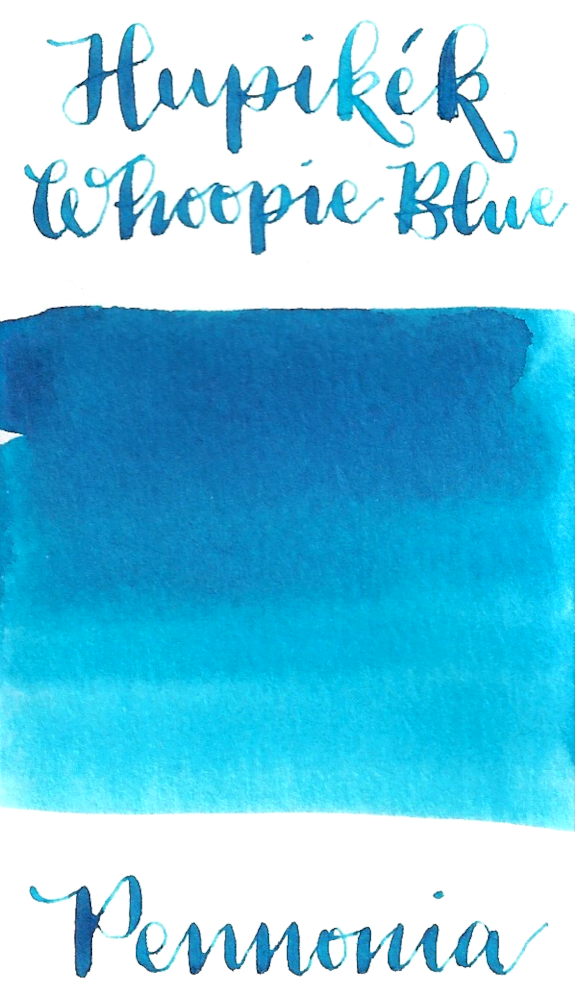 Hupikék
Whoopie Blue
Pennonia